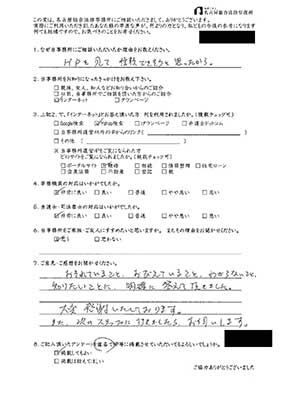 名古屋総合法律事務所
この度は、名古屋総合法律事務所にご相談いただきまして、ありがとうございます。
1. なぜ当事務所にご相談いただいたか理由をお教えください。
HPを見て 信頼できそうと思ったから。
2. 当事務所をお知りになったきっかけをお教え下さい。
□親族、友人、知人などお知り合いからのご紹介
□以前、当事務所でご相談を頂いた方からのご紹介
☑インターネット □タウンページ
3. 上記2. で、「インターネット」とお答え頂いた方 何を利用されましたか。(複数チェック可)
□Google検索 ☑Yahoo検索 □タウンページ □弁護士ドットコム
□その他(
□ポータルサイト □相続 □債務整理 □住宅ローン
□企業法務 □不動産 □登記 □税務
4. 事務職員の対応はいかがでしたか。
☑非常に良い □良い □普通 □やや悪い □悪い
5. 弁護士・司法書士の対応はいかがでしたか。
☑非常に良い □良い □普通 □やや悪い □悪い
6. 当事務所をご家族・ご友人にすすめたいと思いますか。 またその理由をお聞かせください。
☑思う □思わない
7. ご意見・ご感想をお聞かせください。
わからないこと、
知りたいことに、明確に 答えて頂きました。
大変 感謝いたしております。
また、次のステップに行きましたら お伺いします。
8. ご記入頂いたアンケートを匿名でHP等に掲載させていただいてもよろしいでしょうか。
□掲載してもよい
□掲載は控えてほしい
ご協力ありがとうございました